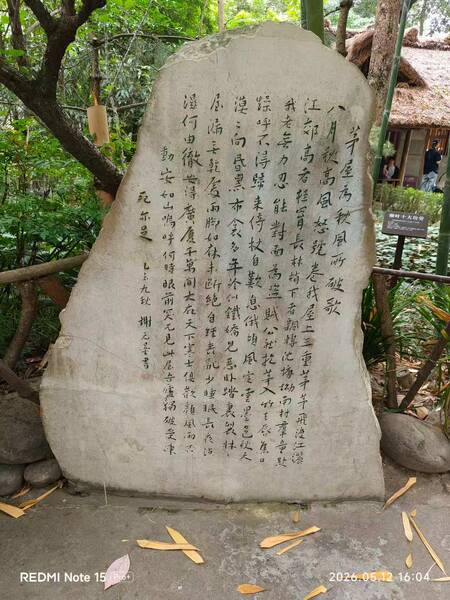 茅屋為秋風所破歌
八月秋高風怒號卷我屋上三重茅茅飛渡江灑
江郊高者挂罥長林梢下者飄轉沈塘坳南村群童欺
我老無力忍能對面為盜賊公然抱茅入竹去唇焦口
燥呼不得歸來倚杖自歎息俄頃風定雲墨色秋天
漠漠向昏黑布衾多年冷似鐵嬌兒惡卧踏裏裂牀
屋漏無乾處雨脚如麻未斷絕自經喪亂少睡眠長夜沾
濕何由徹安得廣厦千萬間大庇天下寒士俱歡顏風雨不
動安如山嗚呼何時眼前突兀見此屋吾廬獨破受凍
死亦足 乙未九秋 謝無量書
柳叶十大功劳
REDMI Note 15 pro+
2026.05.12 16:04